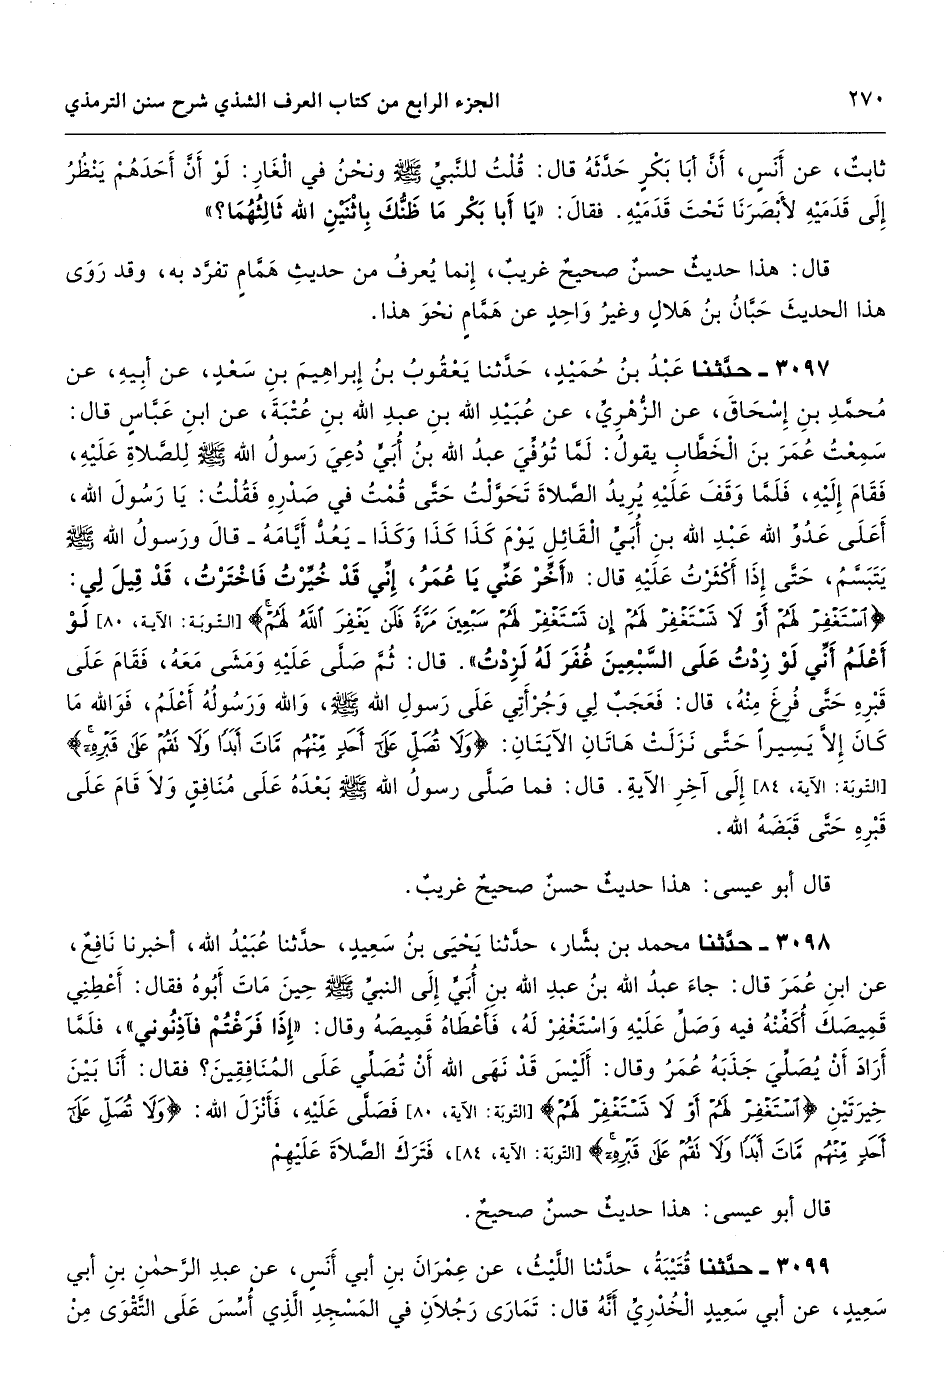 ٢٧٠ الجزء الرابع من كتاب العرف الشذي شرح سنن الترمذي
ثابتٌ، عن أَنَسٍ، أَنَّ أبَا بَكْرٍ حَدَّثَهُ قال: قُلْتُ للنَّبيِّ ﷺ ونحْنُ في الْغَارِ: لَوْ أَنَّ أَحَدَهُمْ يَنْظُرُ
إلَى قَدَمَيْهِ لأَبْصَرَنَا تَحْتَ قَدَمَيْهِ. فقالَ: «يَا أَبا بَكْر مَا ظَنُّكَ بِاثْنَيْنِ الله ثَالِثُهُمَا؟»
قال: هذا حديثٌ حسنٌ صحيحٌ غريبٌ، إنما يُعرفُ من حديثِ هَمَّامٍ تفرَّد به، وقد رَوَى
هذا الحديثَ حَبَّانُ بنُ هَلالٍ وغيرُ وَاحِدٍ عن هَمَّامٍ نحْوَ هذا.
٣٠٩٧ ـ حدَّثنا عَبْدُ بنُ حُمَيْدٍ، حَدَّثنا يَعْقُوبُ بنُ إبراهيمَ بنِ سَعْدٍ، عن أبيهِ، عن
مُحمَّدِ بنِ إسْحَاقَ، عن الزُّهْرِيِّ، عن عُبَيْدِ الله بنِ عبدِ الله بنِ عُتْبَةَ، عن ابنِ عَبَّاسٍ قال:
سَمِعْتُ عُمَرَ بنَ الْخَطَّابِ يقولُ: لَمَّا تُوُفِّيَ عبدُ الله بنُ أُبَيٍّ دُعِيَ رَسولُ الله ﷺ لِلصَّلاةِ عَلَيْهِ،
فَقَامَ إلَيْهِ، فَلَمَّا وَقَفَ عَلَيْهِ يُرِيدُ الصَّلاةَ تَحَوَّلْتُ حَتَّى قُمْتُ في صَدْرِهِ فَقُلْتُ: يَا رَسُولَ الله،
أَعَلَى عَدُوِّ الله عَبْدِ الله بنِ أُبَيٍّ الْقَائِلِ يَوْمَ كَذَا كَذَا وَكَذَا ـ يَعُدُّ أَيَّامَهُ ـ قالَ ورَسولُ الله ﷺ
يَتَبَسَّمُ، حَتَّى إذَا أَكْثَرْتُ عَلَيْهِ قال: «أَخِّرْ عَنِّي يَا عُمَرُ، إنِّي قَدْ خُيِّرْتُ فَاخْتَرْتُ، قَدْ قِيلَ لِي:
﴿ٱسْتَغْفِرْ لَهُمْ أَوْ لَا تَسْتَغْفِرْ لَهُمْ إِن تَسْتَغْفِرْ لَهُمْ سَبْعِينَ مَرَّةً فَلَن يَغْفِرَ ٱللَّهُ لَهُمْ﴾ [التّوبَة: الآية، ٨٠] لَوْ
أَعْلَمُ أَنِّي لَوْ زِدْتُ عَلَى السَّبْعِينَ غُفَرَ لَهُ لَزِدْتُ». قال: ثُمَّ صَلَّى عَلَيْهِ وَمَشَى مَعَهُ، فَقَامَ عَلَى
قَبْرِهِ حَتَّى فُرِغَ مِنْهُ، قال: فَعَجَبٌ لِي وَجُرْأَتِي عَلَى رَسولِ الله ﷺ، وَالله وَرَسُولُهُ أَعْلَمُ، فَوَالله مَا
كَانَ إلاَّ يَسِيراً حَتَّى نَزَلَتْ هَاتَانِ الآيَتَانِ: ﴿وَلَا تُصَلِّ عَلَىٰٓ أَحَدٍ مِّنْهُم مَّاتَ أَبَدًا وَلَا نَقُمْ عَلَىٰ قَبْرِهِۦٓ﴾
[التّوبَة: الآية، ٨٤] إلَى آخِرِ الآيةِ. قال: فما صَلَّى رسولُ الله ﷺ بَعْدَهُ عَلَى مُنَافِقٍ وَلاَ قَامَ عَلَى
قَبْرِهِ حَتَّى قَبَضَهُ الله.
قال أبو عيسى: هذا حديثٌ حسنٌ صحيحٌ غريبٌ.
٣٠٩٨ ـ حدَّثنا محمد بن بشَّار، حدَّثنا يَحْيَى بنُ سَعِيدٍ، حدَّثنا عُبَيْدُ الله، أخبرنا نَافِعٌ،
عن ابنِ عُمَرَ قال: جاءَ عبدُ الله بنُ عبدِ الله بنِ أُبَيٍّ إلَى النبيِّ ﷺ حِينَ مَاتَ أَبُوهُ فقال: أَعْطِنِي
قَمِيصَكَ أُكَفِّنْهُ فيه وَصَلِّ عَلَيْهِ وَاسْتَغْفِرْ لَهُ، فَأَعْطَاهُ قَمِيصَهُ وقال: «إِذَا فَرَغْتُمْ فآذِنُوني»، فلمَّا
أرَادَ أَنْ يُصَلِّيَ جَذَبَهُ عُمَرُ وقال: أَلَيْسَ قَدْ نَهَى الله أَنْ تُصَلِّي عَلَى المُنَافِقِينَ؟ فقال: أَنَا بَيْنَ
خِيرَتَيْنِ ﴿ٱسْتَغْفِرْ لَهُمْ أَوْ لَا تَسْتَغْفِرْ لَهُمْ﴾ [التّوبَة: الآية، ٨٠] فَصَلَّى عَلَيْهِ، فَأَنْزَلَ الله: ﴿وَلَا تُصَلِّ عَلَىٰٓ
أَحَدٍ مِّنْهُم مَّاتَ أَبَدًا وَلَا نَقُمْ عَلَىٰ قَبْرِهِۦٓ﴾ [التّوبَة: الآية، ٨٤]، فَتَرَكَ الصَّلاَةَ عَلَيْهِمْ
قال أبو عيسى: هذا حديثٌ حسنٌ صحيحٌ.
٣٠٩٩ ـ حدَّثنا قُتَيْبَةُ، حدَّثنا اللَّيْثُ، عن عِمْرَانَ بنِ أبي أَنَسٍ، عن عبدِ الرَّحمٰنِ بنِ أبي
سَعِيدٍ، عن أبي سَعِيدٍ الْخُدْرِيِّ أَنَّهُ قال: تَمَارَى رَجُلاَنِ في المَسْجِدِ الَّذِي أُسِّسَ عَلَى التَّقْوَى مِنْ